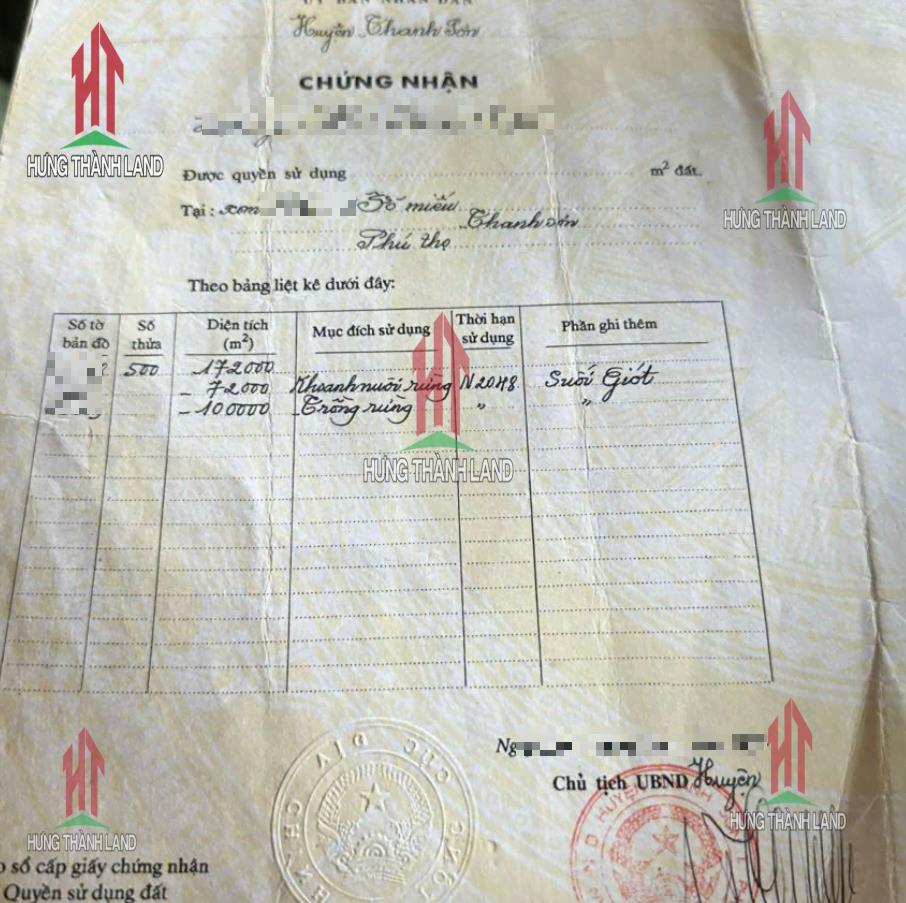 ỦY BAN NHÂN DÂN
Huyện Thanh Sơn
CHỨNG NHẬN
HƯNG THÀNH LAND
HƯNG THÀNH LAND
Được quyền sử dụng m² đất.
Tại: xóm Tế miếu
Thanh Sơn
Phú thọ
Theo bảng liệt kê dưới đây:
Số tờ bản đồ Số thửa Diện tích (m²) Mục đích sử dụng Thời hạn sử dụng Phần ghi thêm
500 172000
- 72.000 Khoanh nuôi rừng N2048 Suối Giót
- 100000 - Trồng rừng " "
HƯNG THÀNH LAND
Chủ tịch UBND Huyện
HƯNG THÀNH LAND
HƯNG THÀNH LAND
o sổ cấp giấy chứng nhận
Quyền sử dụng đất